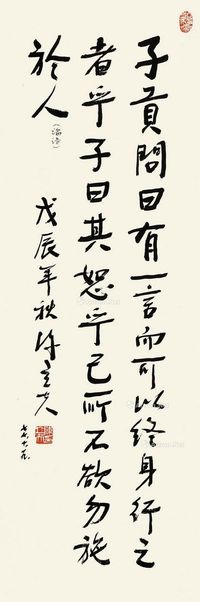 子貢問曰有一言而可以終身行之
者乎子曰其恕乎己所不欲勿施
於人（論語）
戊辰年秋陳立夫